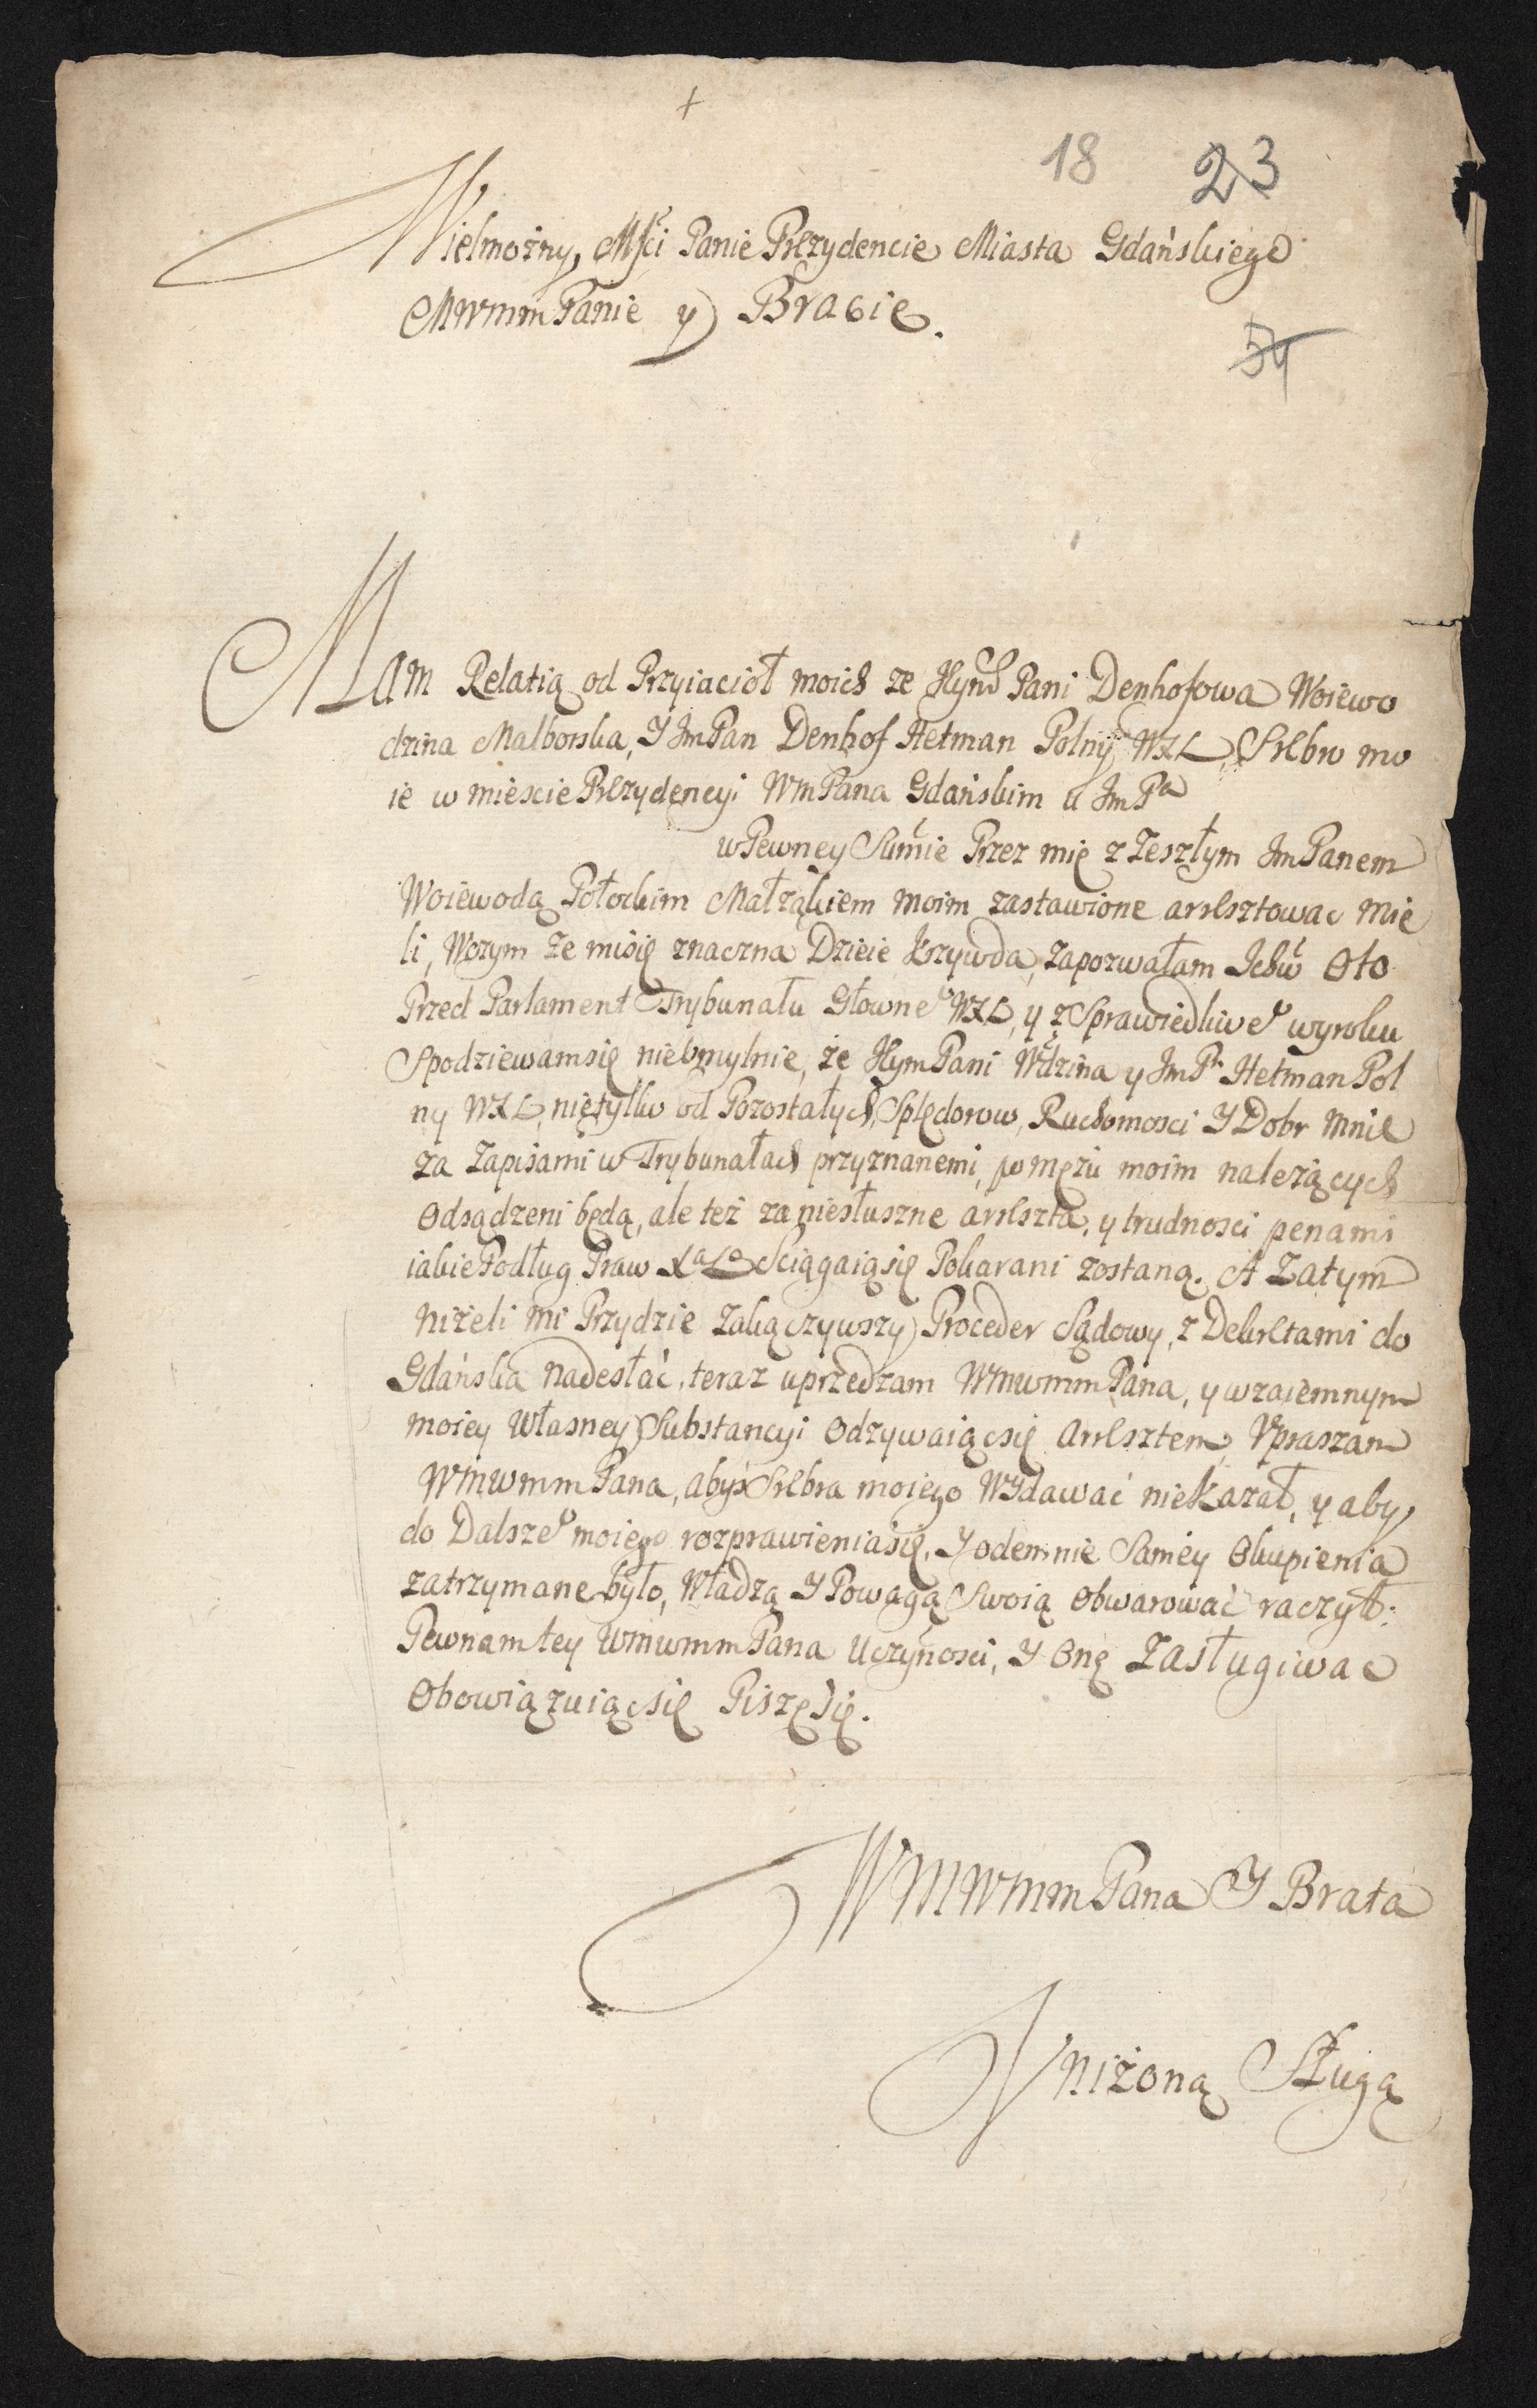 +
18 23
Wielmożny Mści Panie Prezydencie Miasta Gdańskiego
MwmmPanie y Bracie.
54
Mam Relatią od Przyiacioł moich ze Pani Denhofowa Woiewo
dzina Malborska, Y ImPan Denhof Hetman Polny WXL Srebro mo
ie w mieście Prezydencyi WmPana Gdańskim u ImPa
w Pewney Sumie Przez mię z Zeszłym ImPanem
Woiewodą Połockim Małżąkiem moim zastawione arresztowac mie
li, Wczym że misię znaczna Dzieie krzywda, zapozwałam Ichm Oto
Przed Parlament Trybunału Głowneo WXL, y z Sprawiedliweo wyroku
Spodziewamsię nieomylnie, że Pani Wdzina y ImPn Hetman Pol
ny WXL, nietylko od Pozostałych Splędorow, Ruchomosci Y Dobr Mnie
za Zapisami w Trybunałach przyznanemi, po mężu moim należących
Odsądzeni będą, ale też za niesłuszne arreszta, y trudnosci penami
iakie Podług Praw Xa Lo Sciągaiąsię Pokarani zostaną. A Zatym
niżeli mi Przydzie Zakączywszy Proceder Sądowy, z Dekretami do
Gdańska nadesłać, teraz uprzedzam WmwmmPana, y wzaiemnym
moiey Własney Substancyi Odzywaiącsię Arresztem, Vpraszam
WmwmmPana, abyś Srebra moiego Wydawać niekazał, y aby
do Dalszeo moiego rozprawieniasię, Y odemnie Samey Okupienia
zatrzymane było, Władzą Y Powagą Swoią Obwarować raczył.
Pewnam tey WmwmmPana Uczynosci, Y Onę Zasługiwac
Obowiązuiącsię Piszęsię.
WMWmmPana Y Brata
Vniżoną Sługą